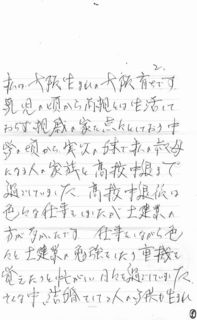 2.
私は大阪生まれの大阪育ちです
乳児の頃から両親とは生活して
おらず親戚の家を点々としており中
学の頃から実父の妹で私の叔母
になる人の家族と高校中退まで
過ごしていました 高校中退後は
色々な仕事をしましたが土建業の
方が多かったです 仕事しながら色
々と土建業の勉強をしたり重機を
覚えたりと忙がしい日々を過ごしていました
そんな中、結婚をして2人の子供も生まれ